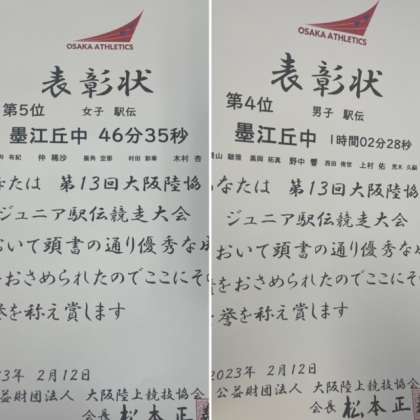 OSAKA ATHLETICS
表彰状
第5位
女子 駅伝
墨江丘中 46分35秒
なたは 第13回大阪陸協
ジュニア駅伝競走大会
おいて頭書の通り優秀な成
をおさめられたのでここにそ
挙を称え賞します
23年 2月12日
益財団法人 大阪陸上競技協会
会長 松本正
OSAKA ATHLETICS
表彰状
第4位
男子 駅伝
墨江丘中 1時間02分28秒
なたは 第13回大阪陸協
ジュニア駅伝競走大会
おいて頭書の通り優秀な
をおさめられたのでここに
誉を称え賞します
2023年 2月12日
公益財団法人 大阪陸上競技協会
会長 松本正